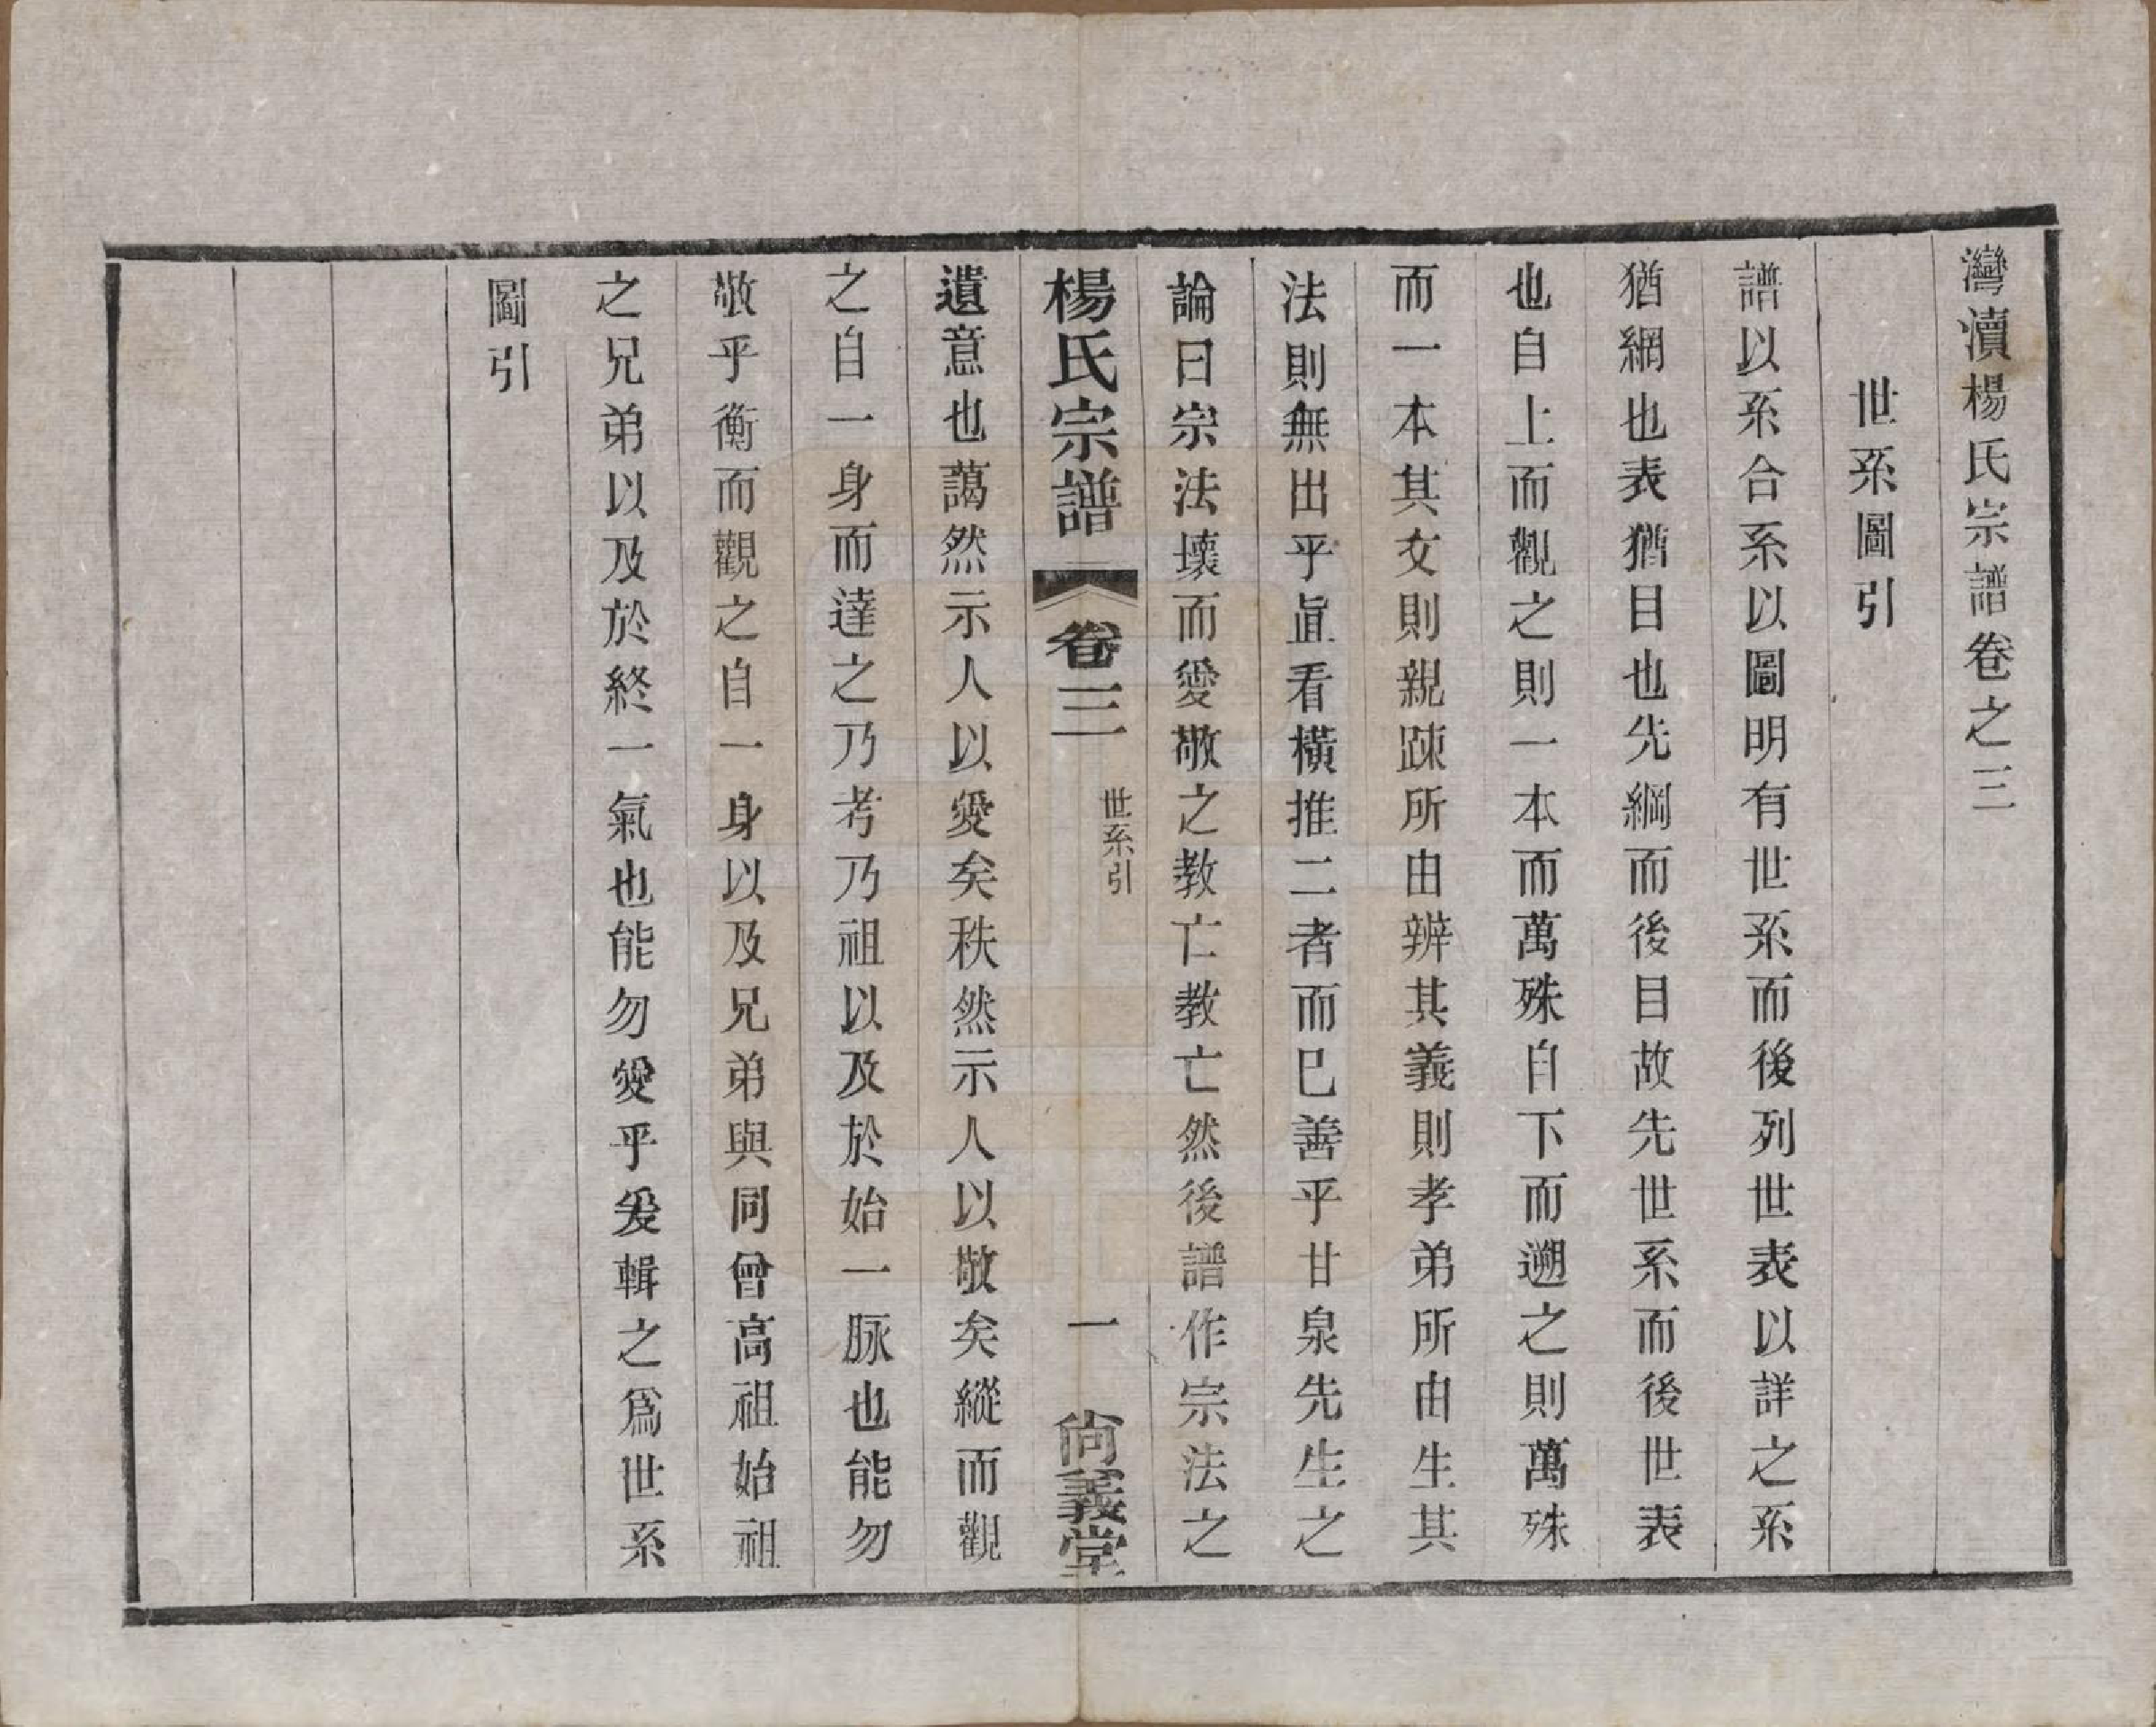 灣瀆楊氏宗譜卷之三
世系圖引
譜以系合系以圖明有世系而後列世表以詳之系
猶綱也表猶目也先綱而後目故先世系而後世表
也自上而觀之則一本而萬殊自下而遡之則萬殊
而一本其文則親踈所由辨其義則孝弟所由生其
法則無出乎直看橫推二者而已善乎甘泉先生之
論曰宗法壞而愛敬之教亡教亡然後譜作宗法之
楊氏宗譜
卷三
世系引
一
尚義堂
遺意也藹然示人以愛矣秩然示人以敬矣縱而觀
之自一身而達之乃考乃祖以及於始一脉也能勿
敬乎衡而觀之自一身以及兄弟與同曾高祖始祖
之兄弟以及於終一氣也能勿愛乎爰輯之爲世系
圖引